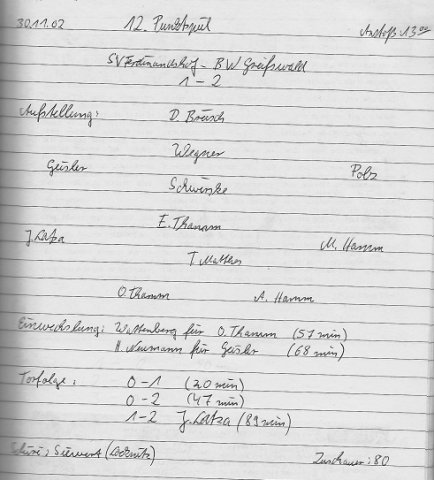 30.11.02 12. Punktspiel Anstoß 13⁰⁰
SV Ferdinandshof - BW Greifswald
1 - 2
Aufstellung: D. Brüsch
Wegner
Geisler Polz
Schwirske
E. Thamm
J. Latza M. Hamm
T. Matthes
O. Thamm A. Hamm
Einwechslung: Wattenberg für O. Thamm (57 min)
H. Neumann für Geisler (68 min)
Torfolge: 0 - 1 (20 min)
0 - 2 (47 min)
1 - 2 J. Latza (89 min)
Schiri: Siewert (Löcknitz) Zuschauer: 80